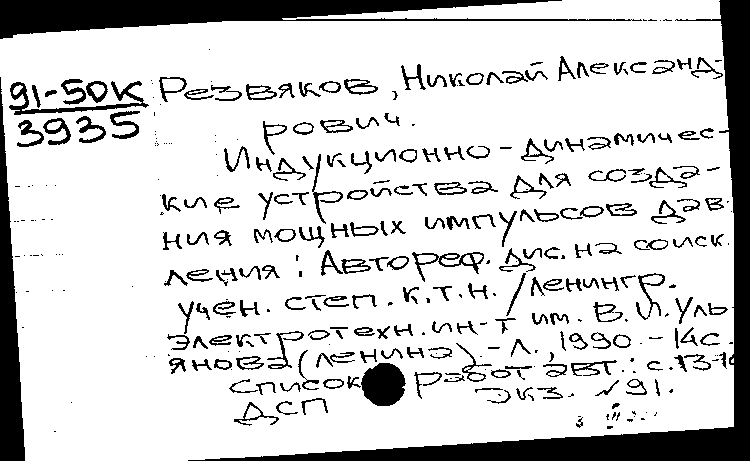 91-50К
3935
Резвяков, Николай Александ-
рович.
Индукционно-динамичес-
кие устройства для созда-
ния мощных импульсов дав
ления : Автореф. дис. на соиск.
учен. степ. к.т.н. / Ленингр.
электротехн. ин-т им. В.И.Уль
янова (Ленина). - Л., 1990. - 14с.
Список работ авт.: с.13-14
ДСП Экз. №91.